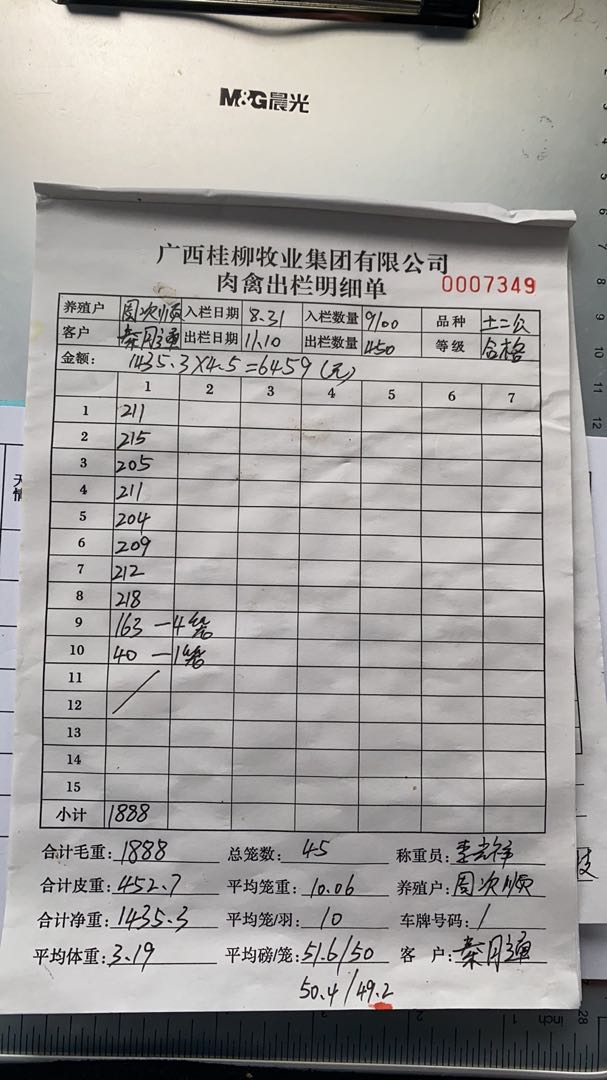 M&G晨光
广西桂柳牧业集团有限公司
肉禽出栏明细单 0007349
养殖户 周次顺 入栏日期 8.31 入栏数量 9100 品种 土二公
客户 秦月通 出栏日期 11.10 出栏数量 450 等级 合格
金额: 1435.3×4.5=6459(元)
1 2 3 4 5 6 7
1 211
2 215
3 205
4 211
5 204
6 209
7 212
8 218
9 163 — 4笼
10 40 — 1笼
11
12
13
14
15
小计 1888
合计毛重: 1888 总笼数: 45 称重员:
合计皮重: 452.7 平均笼重: 10.06 养殖户: 周次顺
合计净重: 1435.3 平均笼/羽: 10 车牌号码: /
平均体重: 3.19 平均磅/笼: 51.6/50 客户: 秦月通
50.4/49.2